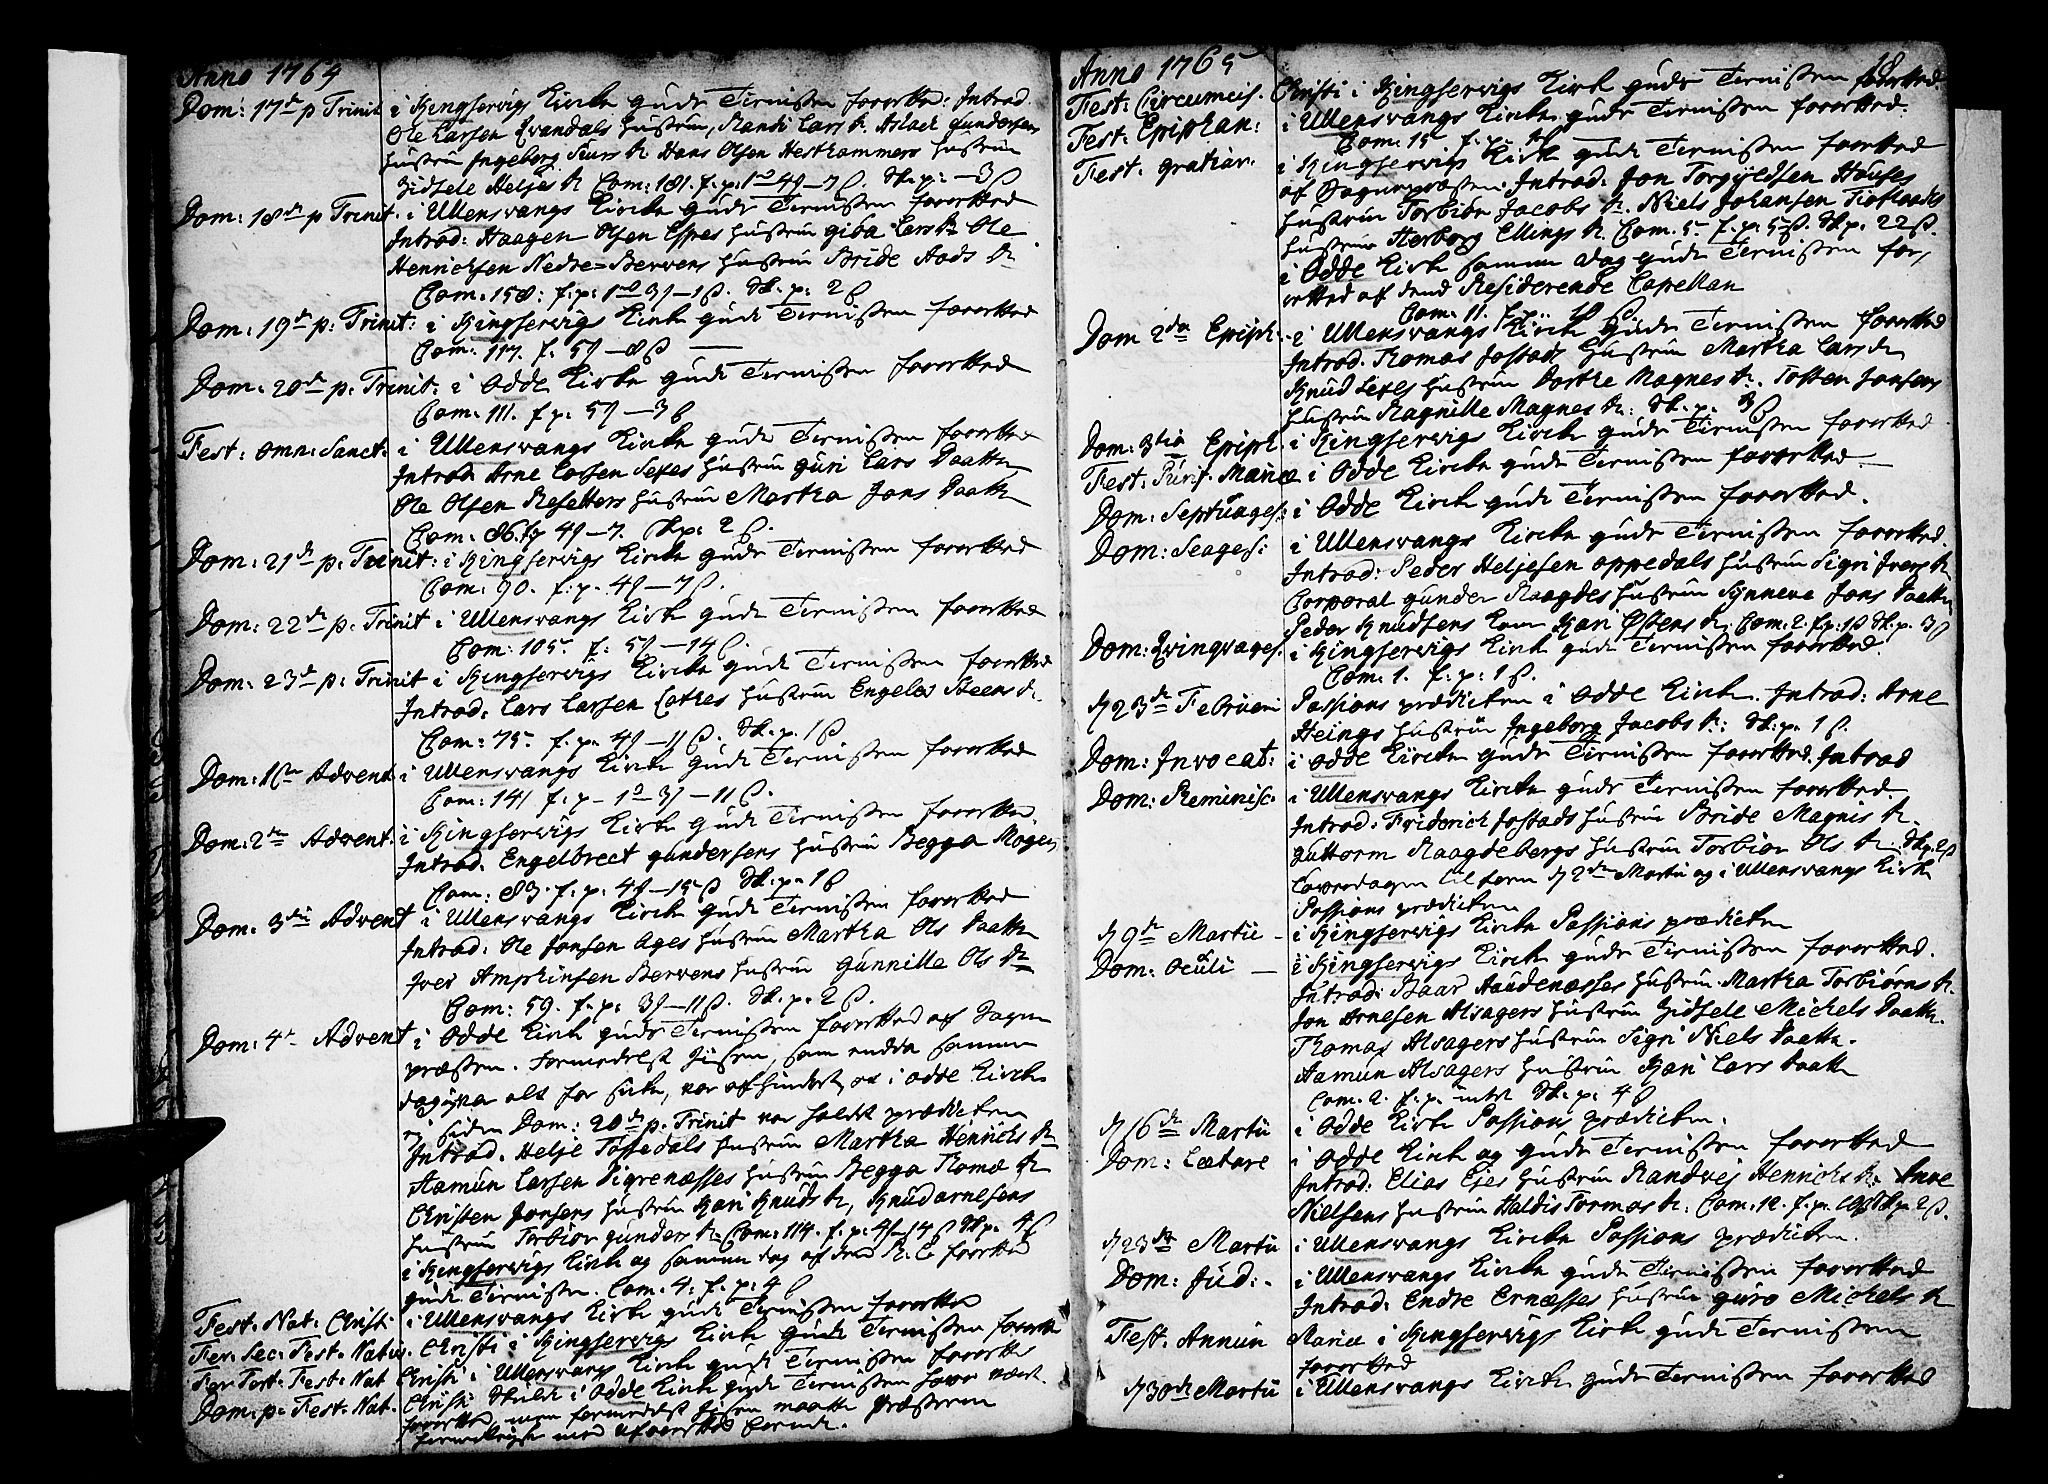 Anno 1764
Dom: 17de p Trinit i Kingservigs Kirke Guds Tienisten forretted: Introd
Ole Larsen Qvandals Hustrue, Randi Lars d. Aslack Gundersens
Hustrue Ingeborg Siurs d. Hans Olsen Hesthammers Hustrue
Gidsele Heljes d. Com: 181. f: p: 1rd 4 – 7ß. Sk. p: – 3ß
Dom: 18de p Trinit: i Ullensvangs Kirke Guds Tienisten forretted
Introd: Haagen Olsen Espes Hustrue Giba Lars d. Ole
Henrichsen Nedre-Bervens Hustrue Bride Aads d.
Com: 158: f: p: 1rd 3 – 1ß. Sk. p: 2ß
Dom: 19de p: Trinit: i Kingservigs Kirke Guds Tienisten forretted
Com: 117. f: 5 – 8ß
Dom: 20de p: Trinit: i Odde Kirke Guds Tienisten forretted
Com: 111. f. p: 5 – 3ß
Fest: omn: Sanct: i Ullensvangs Kirke Guds Tienisten forretted
Introd: Arne Larsen Sexes Hustrue Guri Lars Daatter
Ole Olsen Reisetters Hustrue Martha Jons Daatter
Com: 86. f. p 4 – 7. Sk p: 2ß.
Dom: 21de p: Trinit: i Kingservigs Kirke Guds Tienisten forretted
Com: 90. f: p. 4 – 7ß.
Dom: 22de p: Trinit i Ullensvangs Kirke Guds Tienisten forretted
Com: 105. f: 5 – 14ß.
Dom: 23de p: Trinit i Kingservigs Kirke Guds Tienisten forretted
Introd: Lars Larsen Lothes Hustrue Engelev Steens d.
Com: 75. f. p. 4 – 11ß. Sk. p. 1ß
Dom: 1ste Advent: i Ullensvangs Kirke Guds Tienisten forretted
Com: 141 f: p – 1rd – 3 – 11ß.
Dom: 2den Advent: i Kingservigs Kirke Guds Tienisten forretted
Introd: Engelbrect Gundersens Hustrue Begga Mogens
Com: 83. f: p: 4 – 15ß Sk: p. 1ß
Dom: 3die Advent i Ullensvangs Kirke Guds Tienisten forretted
Introd: Ole Jonsen Ages Hustrue Martha Ols Daatter
Iver Amphinsen Bervens Hustrue Gunnille Ols dr
Com: 59. f. p: 3 – 11ß. Sk. p. 2ß.
Dom: 4de Advent i Odde Kirke Guds Tienisten forretted af Sogne
præsten. formedelst Iisen, som endda samme
dag alt for var at i Odde Kirke
ej siden Dom: 20de p. Trinit var holdt prædicken
Introd: Helje Tossedals Hustrue Martha Henrichs dr
Aamun Larsen Digrenæsses Hustrue Begga Thomæ dr
Christen Jonsens Hustrue Kari Knuds dr, Knud Arnesens
Hustrue Torbior Gunders dr. Com: 114. f: p: 4 – 14ß Sk p. 4ß
i Kingservigs Kirke og samme dag af den R: C: forretted
Guds Tienisten. Com. 4. f. p: 4ß
Fest: Nat: Christi i Ullensvangs Kirke Guds Tienisten forretted
Fer: Sec: Fest: Nativ. Christi i Kingservigs Kirke Guds Tienisten forretted
Fer: Tert: Fest: Nat Christi i Ullensvangs Kirke Guds Tienisten forretted
Dom: p: Fest: Nat. Christi skulde i Odde Kirke Guds Tienisten have vært
forretted, men formedelst Iisen maatte Præsterne
med uforretted Ærende.
Anno 1765
18
Fest: Circumcis. Christi i Kingservigs Kirke Guds Tienisten forretted.
Fest: Epiphan: i Ullensvangs Kirke Guds Tienisten forretted.
Com: 15 f: p:
Fest: gratiar: i Kingservigs Kirke Guds Tienisten forretted
af Sognepræsten. Introd: Jon Torgieldsen Huuses
Hustrue Torbiør Jacobs d. Niels Johansen Tiotlands
Hustrue Herborg Ellings d. Com. 5. f. p: 5ß. Sk p. 22ß.
i Odde Kirke samme dag Guds Tienisten for-
retted af dend Residerende Capellan
Com: 11.
Dom 2da Epiph: i Ullensvangs Kirke Guds Tienisten forretted
Introd. Thomas Jostads Hustrue Martha Lars d
Knud Sexes Hustrue Dorthe Magnes d: Tosten Jonsens
Hustrue Ragnille Magnes d: Sk. p: 3ß
Dom: 3tia Epiph. i Kingservigs Kirke Guds Tienisten forretted
Fest: Purif. Mariæ i Odde Kirke Guds Tienisten forretted
Dom: Septuages: i Odde Kirke Guds Tienisten forretted.
Dom: Seages: i Ullensvangs Kirke Guds Tienisten forretted.
Introd: Peder Heljesen Oppedals Hustrue Sigri Ivers d
Corporal Gunder Raagdes Hustrue Synneve Jons Daatter
Peder Knudsens Kone Kari Østens d. Com. 2. f p: 1ß Sk. p. 3ß
Dom: Qvinqvages. i Kingservigs Kirke Guds Tienisten forretted.
Com: 1. f: p: 1ß.
d 23de Februarii Passions prædicken i Odde Kirke. Introd: Arne
Heings Hustrue Ingeborg Jacobs d: Sk: p. 1ß.
Dom: Invocat: i Odde Kirke Guds Tienisten forretted. Introd
Dom: Reminisc: i Ullensvangs Kirke Guds Tienisten forretted.
Introd: Friderich Jostads Hustrue Bride Magnis d.
Guttorm Raagdebergs Hustrue Torbior Ols d. Sk p. 2ß
Løverdagen tilforn d 2den Martii og i Ullensvangs Kirke
Passions prædicken
d 9de Martii – i Kingservigs Kirke Passions prædicken
Dom: Oculi – i Kingservigs Kirke Guds Tienisten forretted.
Introd: Baar Haudenæsses Hustrue Martha Torbiørns d.
Jon Arnesen Alsagers Hustrue Gidsele Michels Daatter.
Thomas Alsagers Hustrue Sigri Niels Daatter.
Aamun Alsagers Hustrue Kari Lars Daatter
Com. 2. f. p. intet Sk. p: 4ß
d 16de Martii i Odde Kirke Passions prædicken.
Dom: Lætare i Odde Kirke og Guds Tienisten forretted
Introd: Elias Ejes Hustrue Randvej Henrichs d: Arne
Nielsens Hustrue Haldis Tormos d: Com. 12. f. p. Sk p. 2ß.
d 23de Martii i Ullensvangs Kirke Passions prædicken.
Dom: Jud: – i Ullensvangs Kirke Guds Tienisten forretted
Introd: Endre Ernæsses Hustrue Guro Michels d
Fest: Annun Mariæ i Kingservigs Kirke Guds Tienisten
forretted
d 30de Martii i Ullensvangs Kirke Guds Tienisten forretted